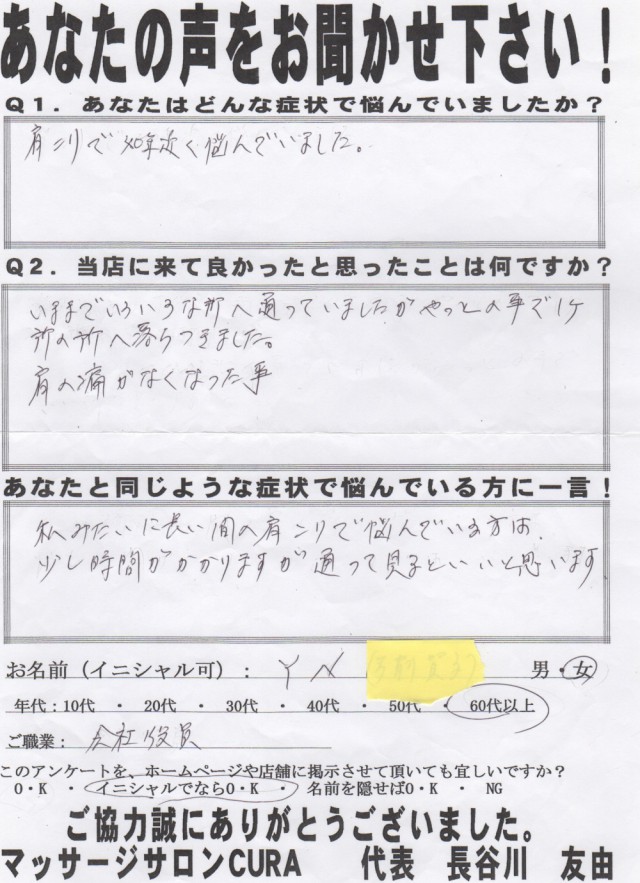 あなたの声をお聞かせ下さい！
Q１．あなたはどんな症状で悩んでいましたか？
肩こりで40年近く悩んでいました。
Q２．当店に来て良かったと思ったことは何ですか？
いままでいろいろな所へ通っていましたがやっとの事で1ケ
所の所へ落ちつきました。
肩の痛がなくなった事
あなたと同じような症状で悩んでいる方に一言！
私みたいに長い間の肩こりで悩んでいる方は、
少し時間がかかりますが通って見るといいと思います
お名前（イニシャル可）： Y N 男・女
年代：10代 ・ 20代 ・ 30代 ・ 40代 ・ 50代 ・ 60代以上
ご職業： 会社役員
このアンケートを、ホームページや店舗に掲示させて頂いても宜しいですか？
O・K ・ イニシャルでならO・K ・ 名前を隠せばO・K ・ NG
ご協力誠にありがとうございました。
マッサージサロンCURA 代表 長谷川 友由